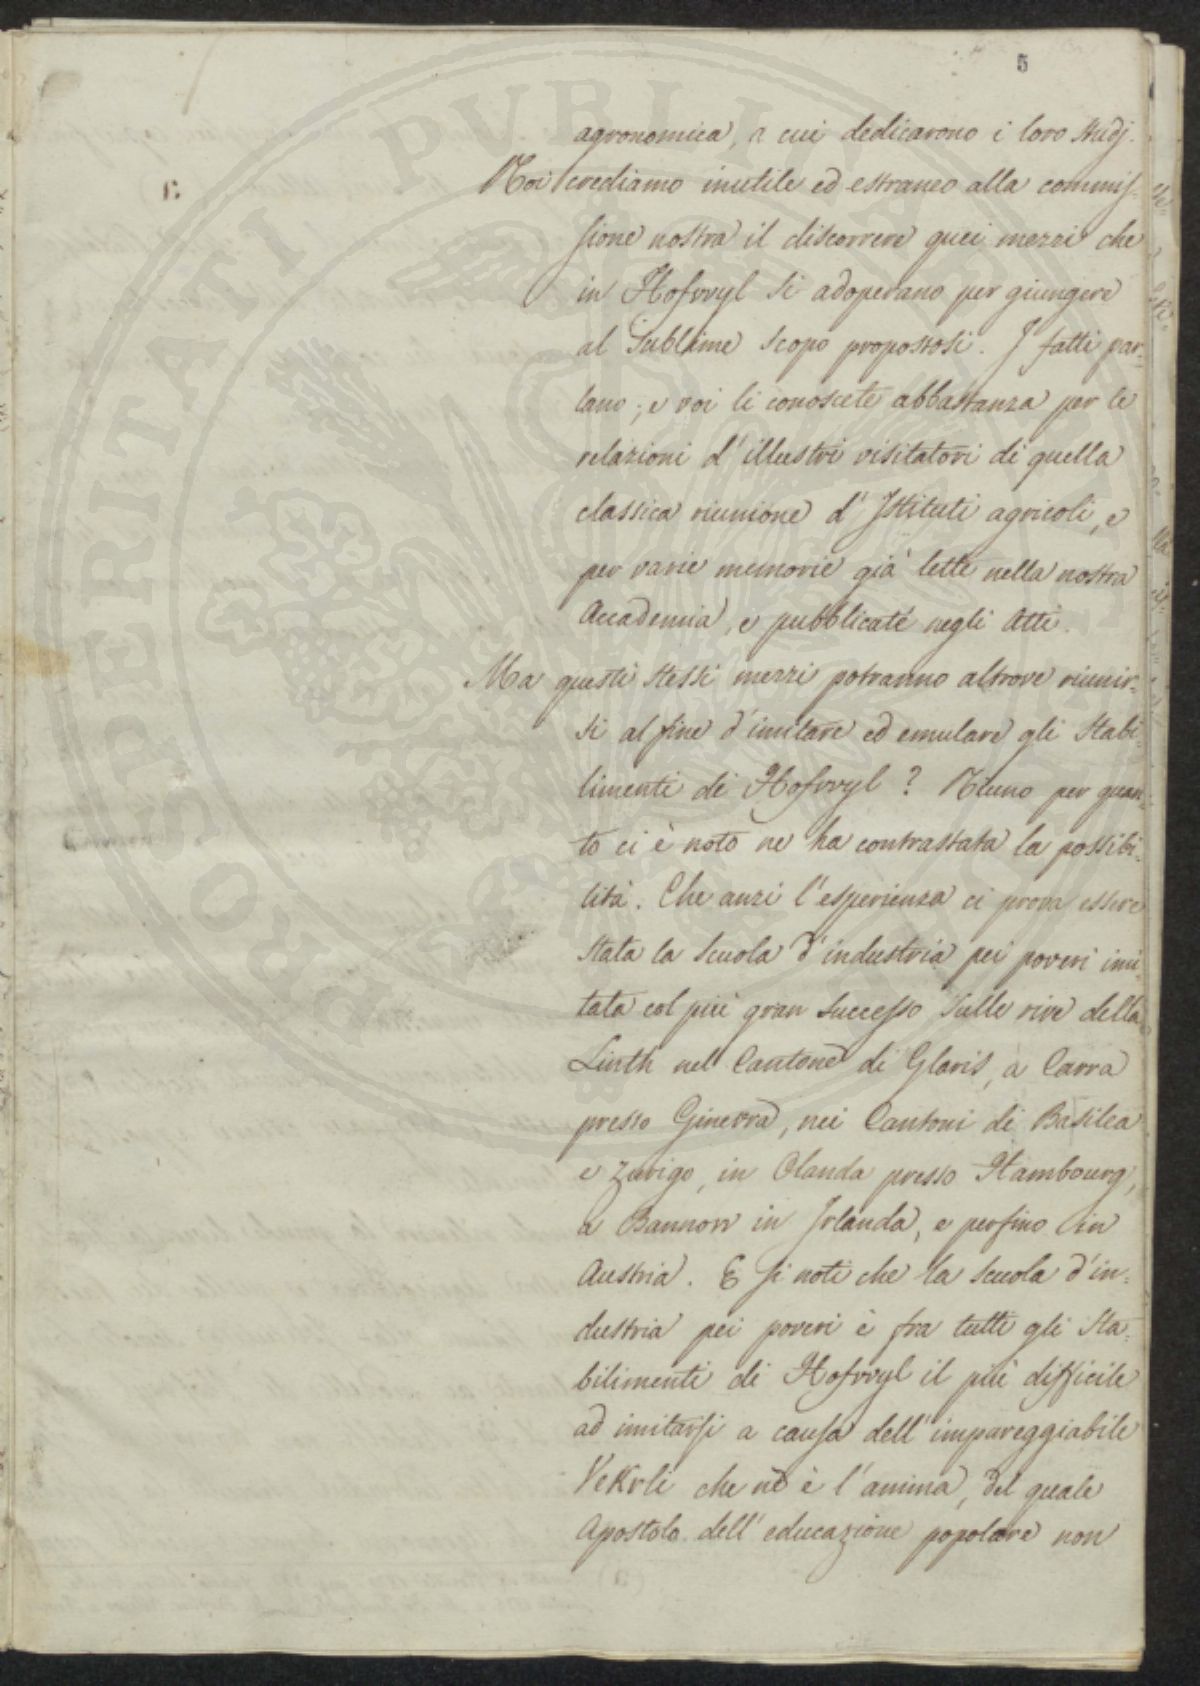 5
agronomica, a cui dedicarono i loro studj.
Noi crediamo inutile ed estraneo alla commis-
sione nostra il discorrere quei mezzi che
in Hofvvyl si adoperano per giungere
al sublime scopo propostosi. I fatti par-
lano; e voi li conoscete abbastanza per le
relazioni d'illustri visitatori di quella
classica riunione d'Istituti agricoli, e
per varie memorie già lette nella nostra
Accademia, e pubblicate negli Atti.
Ma questi stessi mezzi potranno altrove riunir-
si al fine d'imitare ed emulare gli Stabi-
limenti di Hofvvyl? Niuno per quan-
to ci è noto ne ha contrastata la possibi-
lità. Che anzi l'esperienza ci prova essere
stata la scuola d'industria pei poveri imi-
tata col più gran successo sulle rive della
Linth nel Cantone di Glaris, a Carra
presso Ginevra, nei Cantoni di Basilea
e Zurigo, in Olanda presso Hambourg,
a Bannow in Irlanda, e perfino in
Austria. E si noti che la scuola d'in-
dustria pei poveri è fra tutti gli Sta-
bilimenti di Hofvvyl il più difficile
ad imitarsi a causa dell'impareggiabile
Vekrli che ne è l'anima, del quale
Apostolo dell'educazione popolare non
PROSPERITATI PUBLICAE